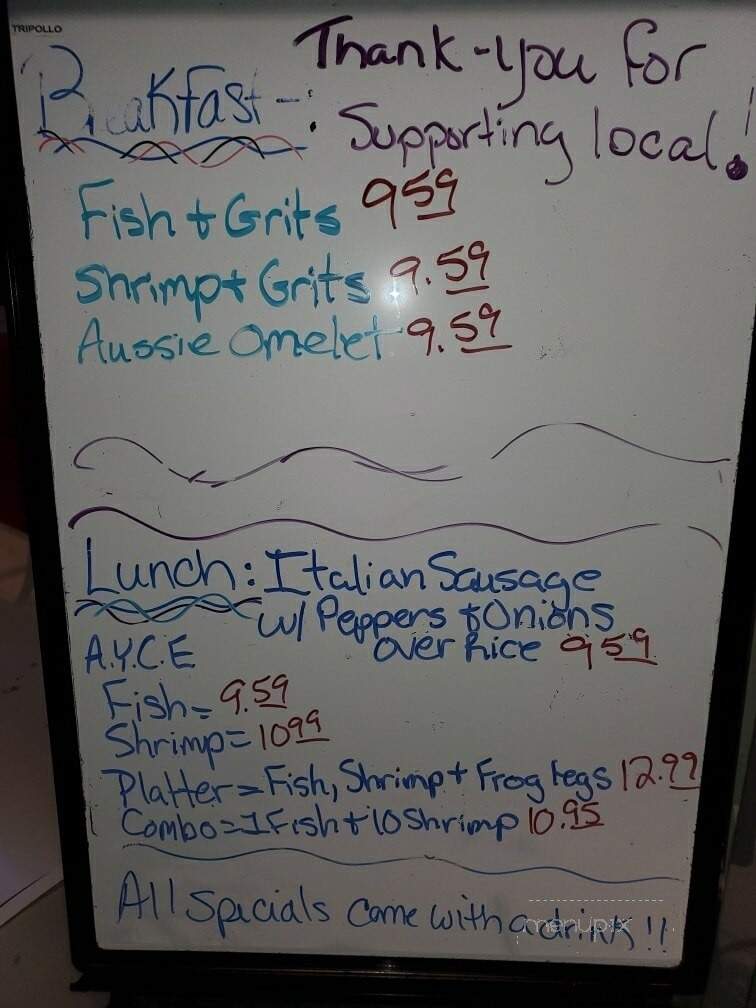 TRIPOLLO
Thank-you for
Breakfast-: Supporting local!
Fish + Grits 9.59
Shrimp + Grits 9.59
Aussie Omelet 9.59
Lunch: Italian Sausage
w/ Peppers + Onions
A.Y.C.E over Rice 9.59
Fish = 9.59
Shrimp = 10.99
Platter = Fish, Shrimp + Frog legs 12.99
Combo = 1 Fish + 10 Shrimp 10.95
All Specials come with a drink!!
menupix